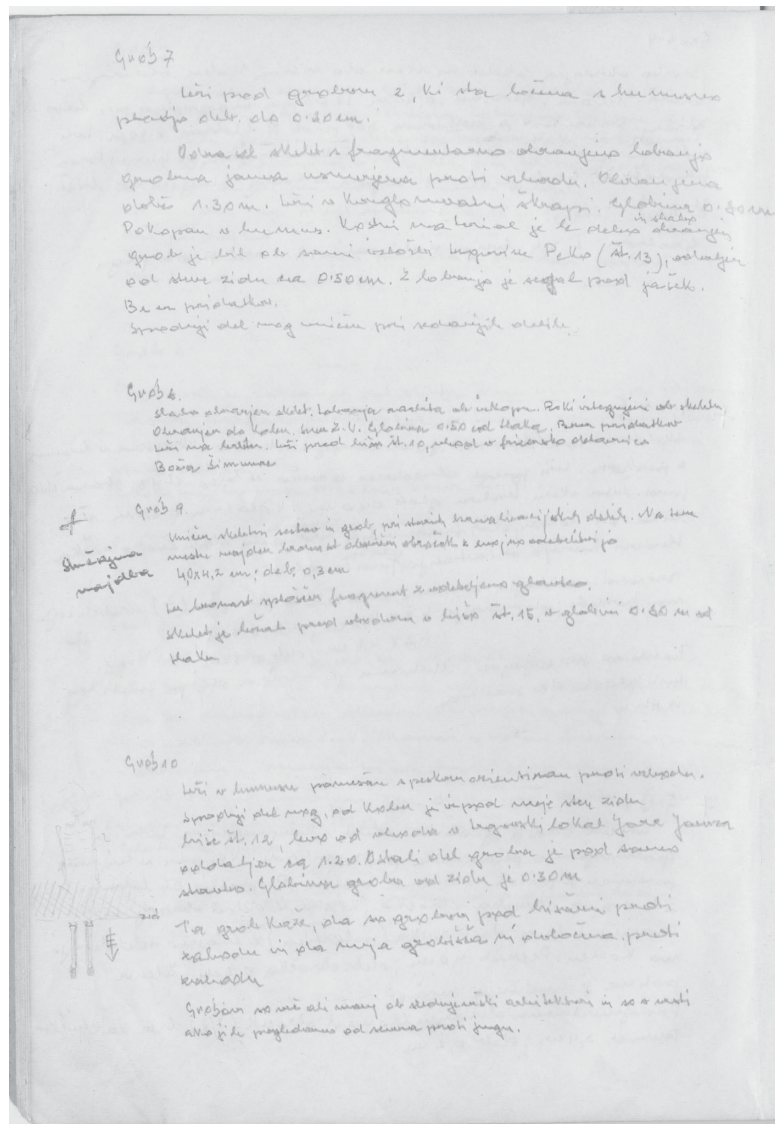 Grob 7
Leži pod grobom 2, ki sta ločena s humusno
plastjo deb. do 0.20 cm.
Odrasel skelet s fragmentarno ohranjeno lobanjo
grobna jama usmerjena proti vzhodu. Ohranjena
dolž. 1.30 m. Leži v konglomeratni škrapi. Globina 0.80 m
Pokopan v humus. Kostni material je le delno in slabo ohranjen
grob je bil ob sami izložbi trgovine Peko (št. 13), oddaljen
od stene zidu za 0.50 cm. Z lobanjo je segal pod jašek.
Brez pridatkov.
Spodnji del nog uničen pri sedanjih delih.
Grob 8.
Slabo ohranjen skelet. Lobanja ob izkopu. Roki iztegnjeni ob skeletu
Ohranjen do kolen. Smer Z-V. Globina 0.50 od tlaka. Brez pridatkov
Leži na hrbtu. Leži pred hišo št. 10, vhod v frizersko delavnico
Grob 9.
Uničen skeletni sestav in grob, pri starih kanalizacijskih delih. Na tem
mestu najden obroček z
4,0 x 4,2 cm; deb. 0,3 cm
Slučajna
najdba
fragment z odebeljeno glavico.
Skelet je ležal pred vhodom v hišo št. 15, v globini 0.80 m od
tlaka
Grob 10
Leži v humusu pomešan s peskom orientiran proti vzhodu.
Spodnji del nog, od kolen je pod stene zidu
hiše št. 12, levo od vhoda v trgovski lokal
oddaljen za 1.20. Ostali del groba je pod samo
stavbo. Globina groba od zidu je 0.30 m
zid
Ta grob kaže, da so grobovi pod hišami proti
zahodu in da meja grobišča ni določena proti
zahodu
Grobovi so več ali manj ob srednjeveški arhitekturi in so v vrsti
ako jih pogledamo od severa proti jugu.